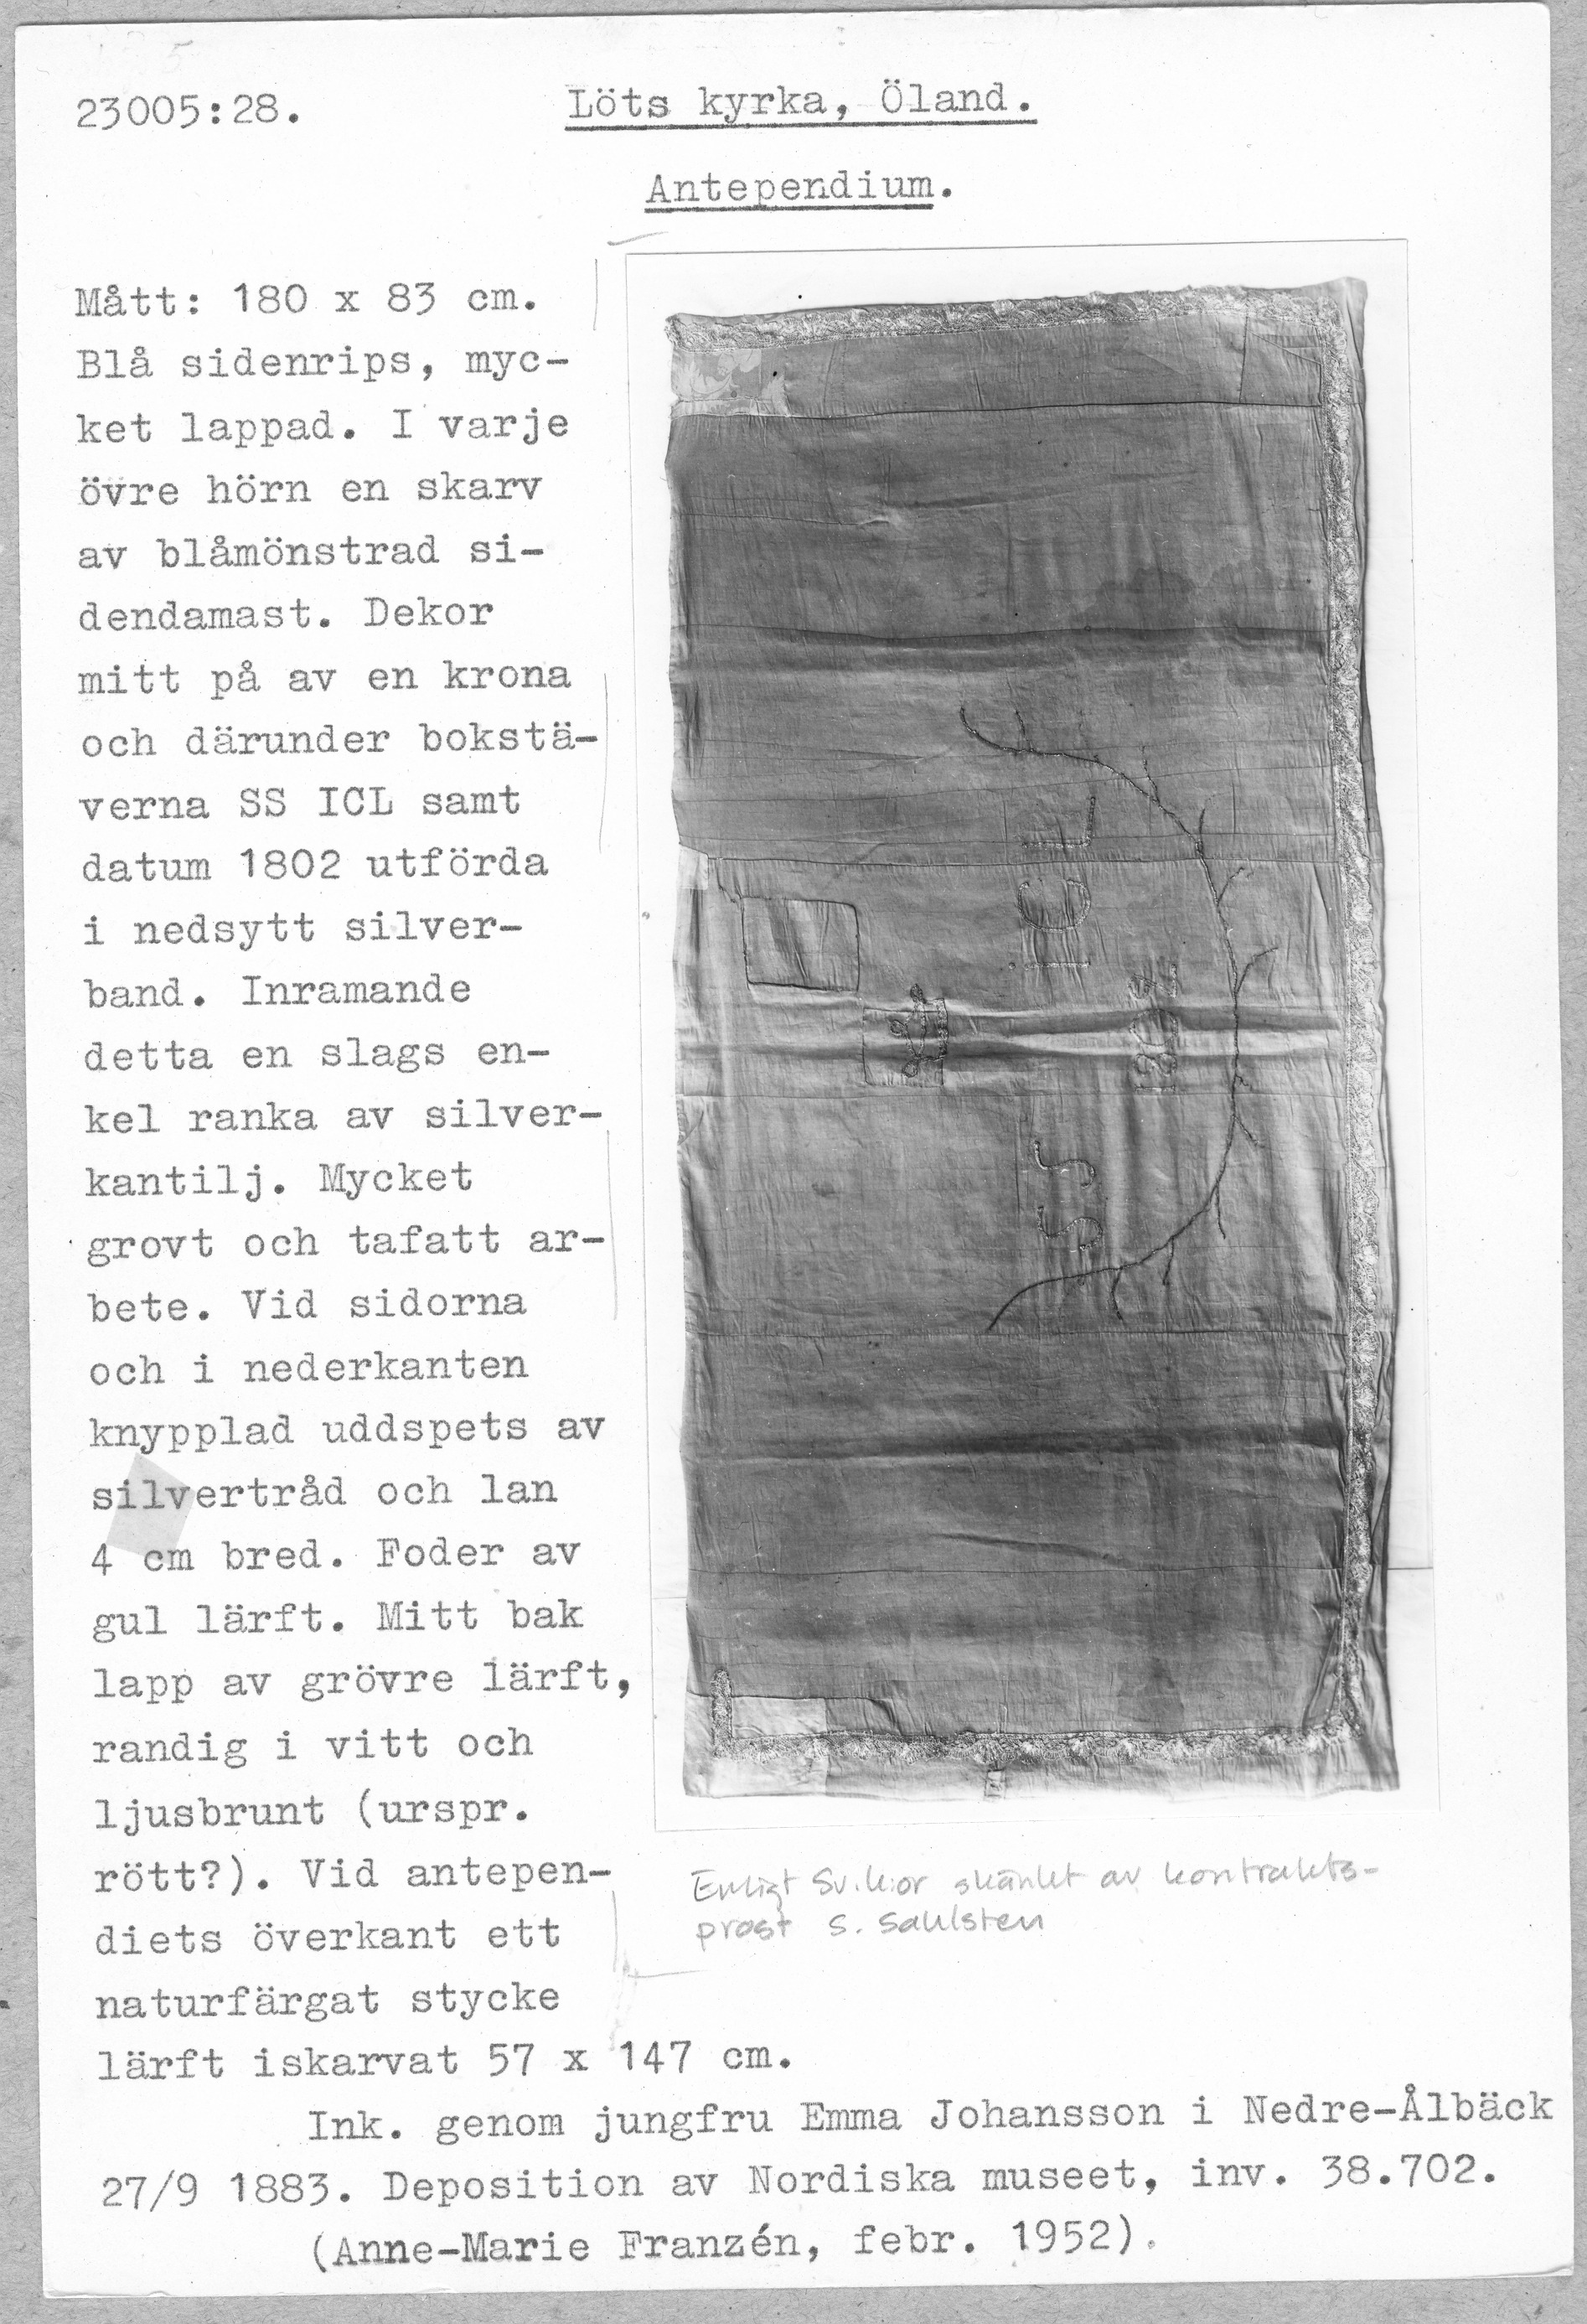 23005:28.
Löts kyrka, Öland.
Antependium.
Mått: 180 x 83 cm.
Blå sidenrips, myc-
ket lappad. I varje
övre hörn en skarv
av blåmönstrad si-
dendamast. Dekor
mitt på av en krona
och därunder bokstä-
verna SS ICL samt
datum 1802 utförda
i nedsytt silver-
band. Inramande
detta en slags en-
kel ranka av silver-
kantilj. Mycket
grovt och tafatt ar-
bete. Vid sidorna
och i nederkanten
knypplad uddspets av
silvertråd och lan
4 cm bred. Foder av
gul lärft. Mitt bak
lapp av grövre lärft,
randig i vitt och
ljusbrunt (urspr.
rött?). Vid antepen-
diets överkant ett
naturfärgat stycke
lärft iskarvat 57 x 147 cm.
SS ICL
1802
Enligt Sv.k:or skänkt av kontrakts-
prost S. Sahlsten
Ink. genom jungfru Emma Johansson i Nedre-Ålbäck
27/9 1883. Deposition av Nordiska museet, inv. 38.702.
(Anne-Marie Franzén, febr. 1952).